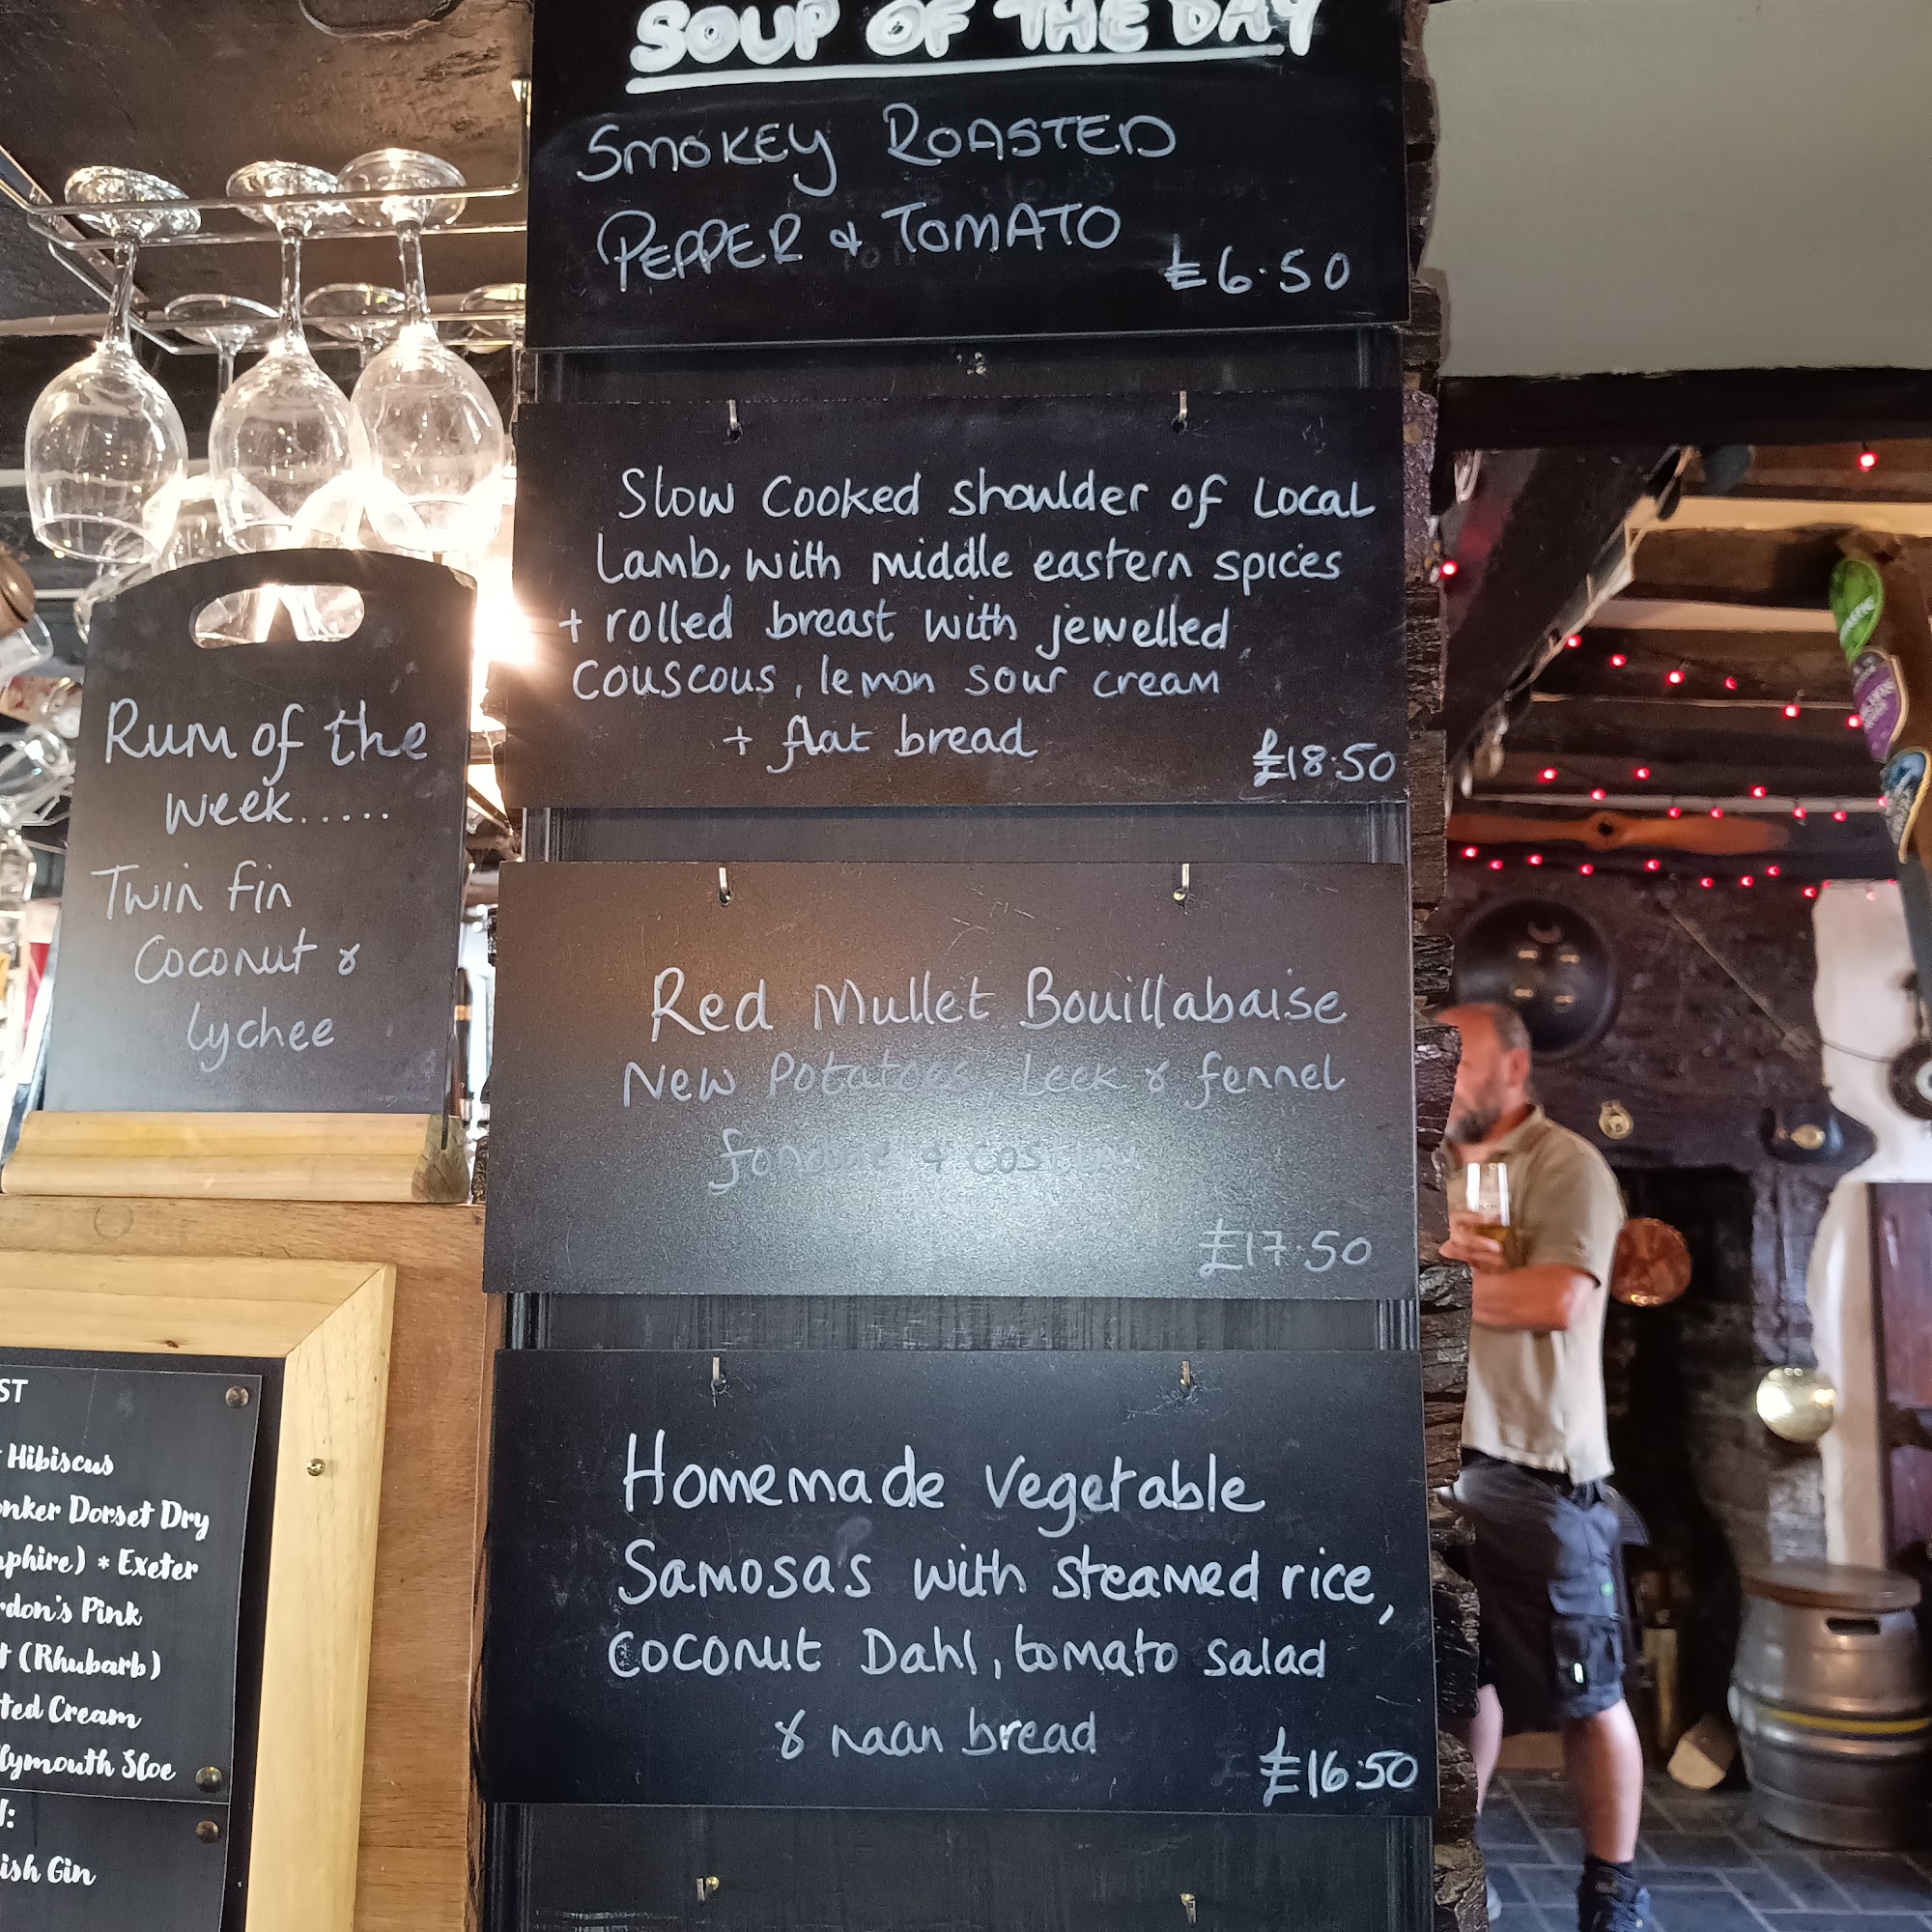 SOUP OF THE DAY
SMOKEY ROASTED
PEPPER & TOMATO
£6.50
Slow Cooked shoulder of Local
Lamb, with middle eastern spices
+ rolled breast with jewelled
couscous, lemon sour cream
+ flat bread
£18.50
Red Mullet Bouillabaise
New Potatoes, Leek & fennel
£17.50
Homemade Vegetable
Samosa's with steamed rice,
coconut Dahl, tomato salad
& naan bread
£16.50
Rum of the
week.....
Twin Fin
Coconut &
Lychee
Hibiscus
Dorset Dry
* Exeter
Pink
(Rhubarb)
Cream
Sloe
Gin